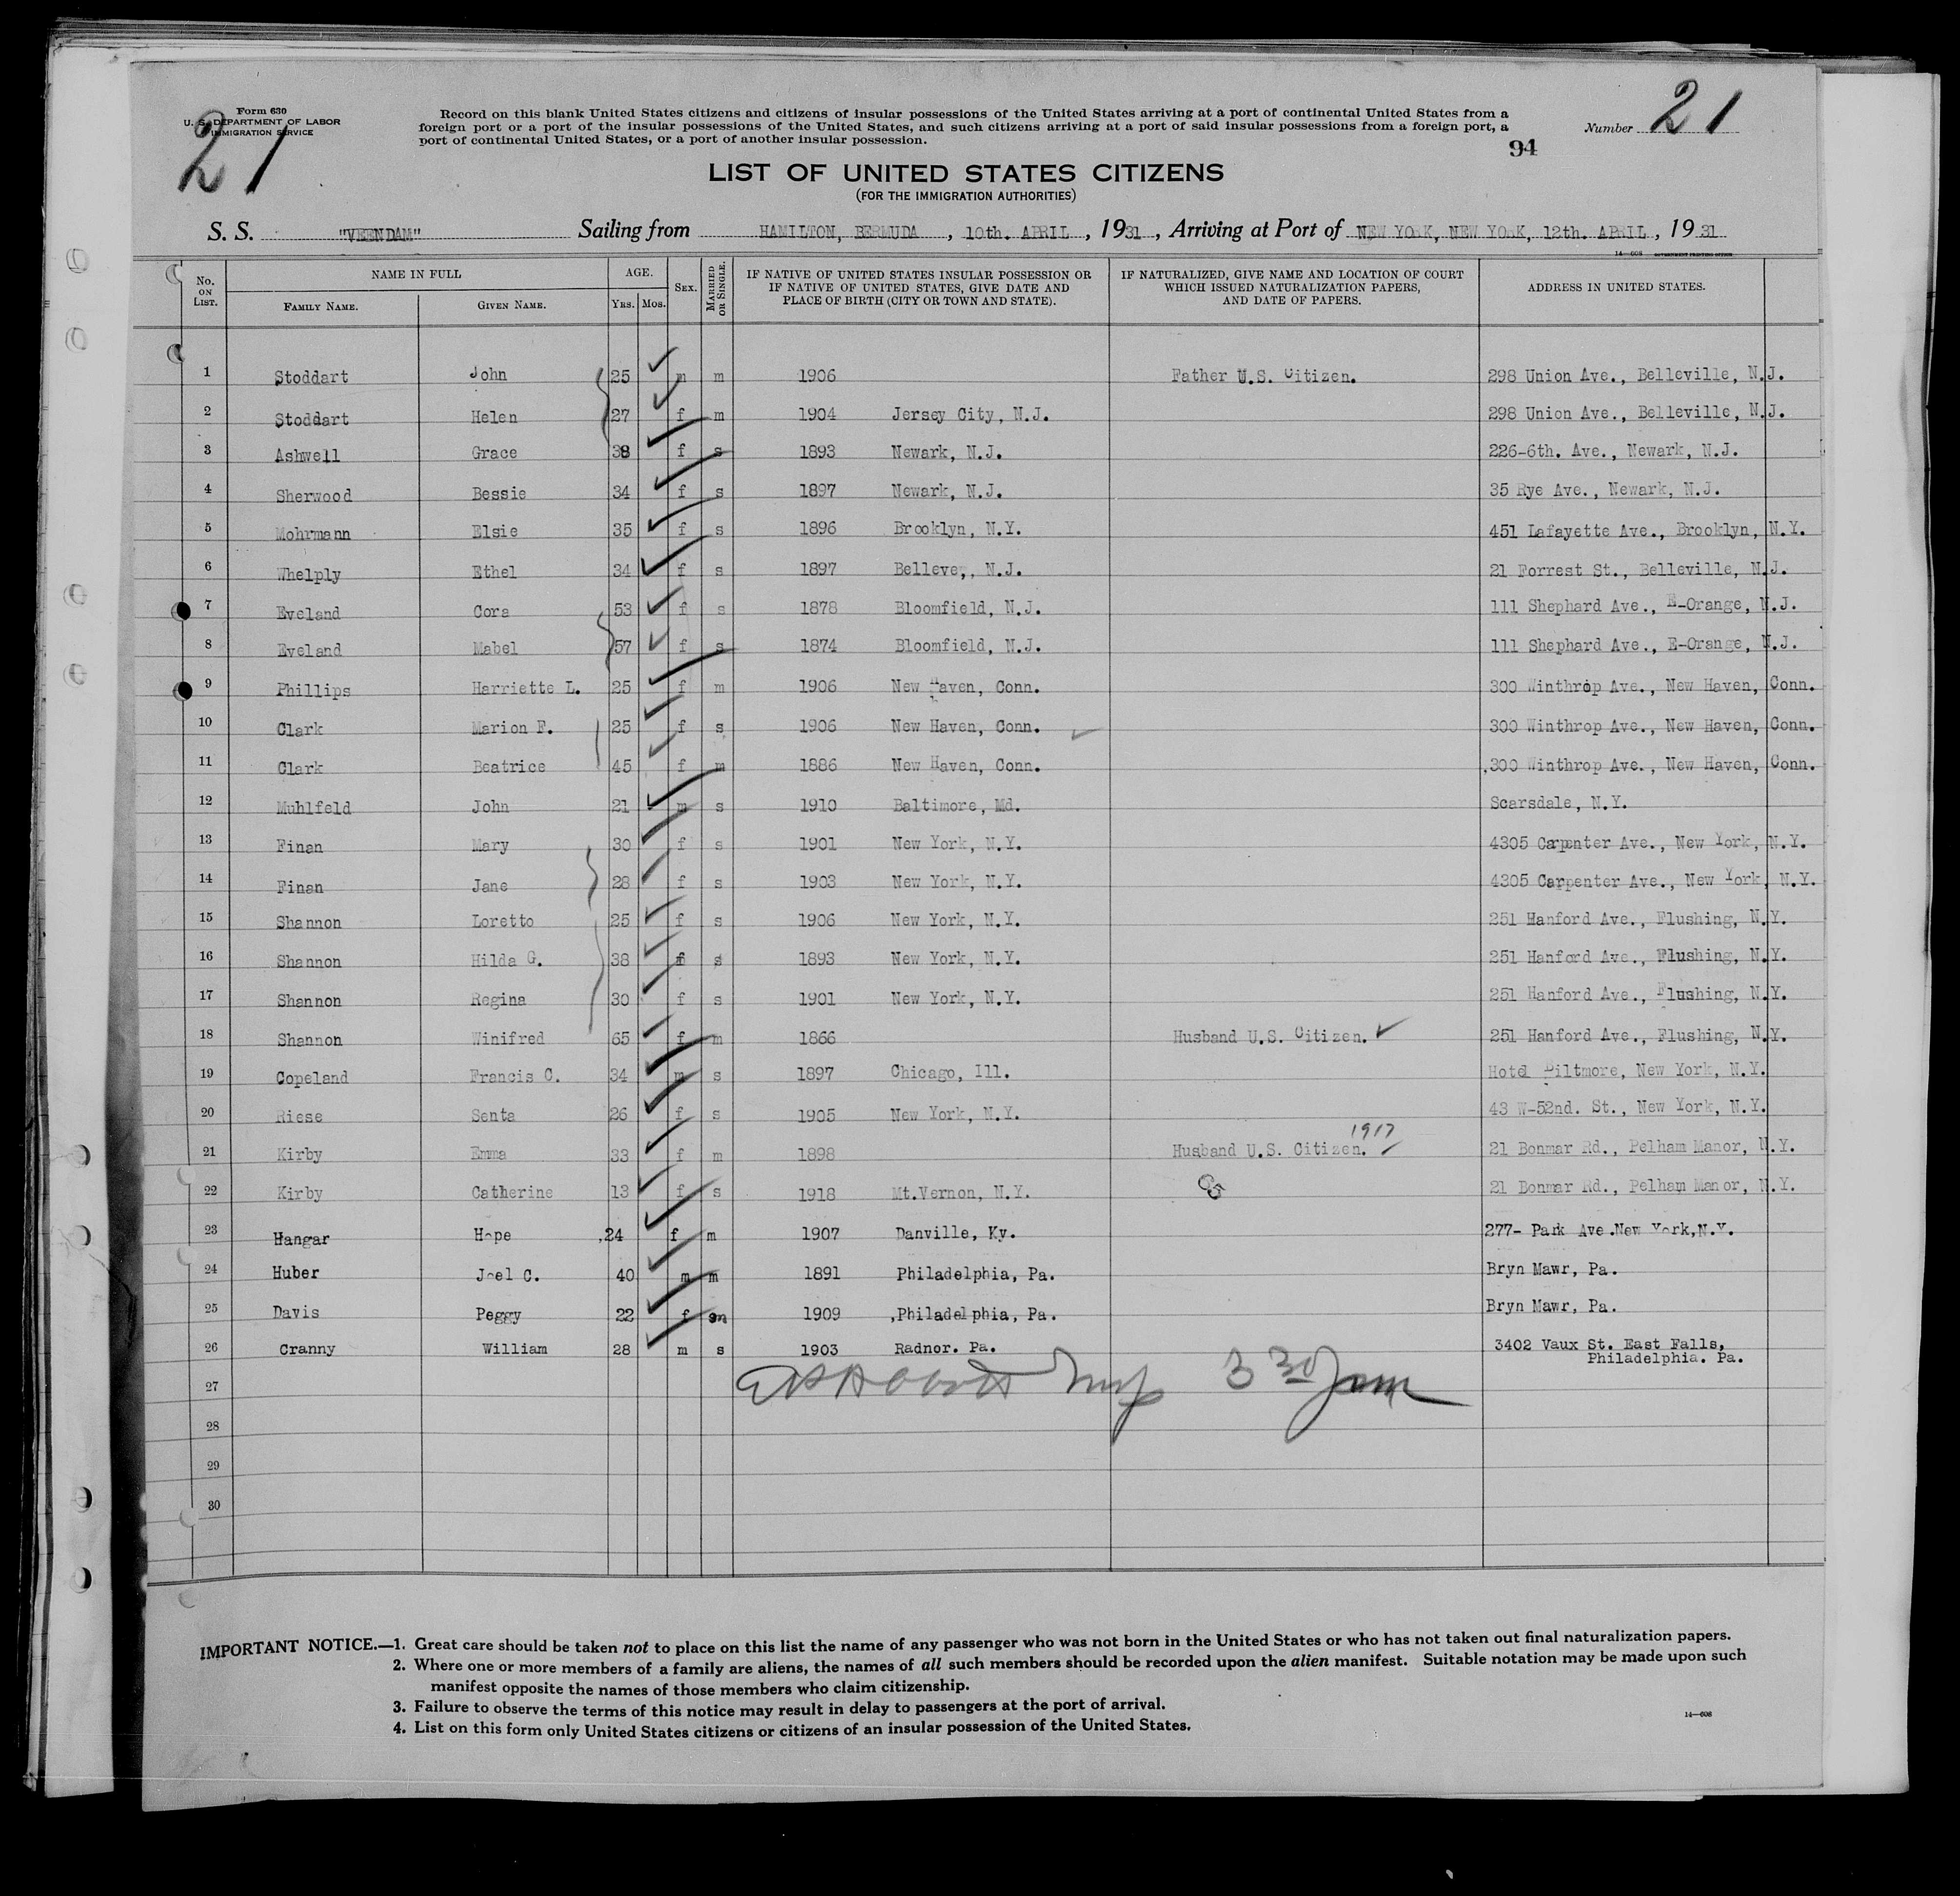 Form 630
U. S. DEPARTMENT OF LABOR
IMMIGRATION SERVICE
21
Record on this blank United States citizens and citizens of insular possessions of the United States arriving at a port of continental United States from a
foreign port or a port of the insular possessions of the United States, and such citizens arriving at a port of said insular possessions from a foreign port, a
port of continental United States, or a port of another insular possession.
Number 21
94
LIST OF UNITED STATES CITIZENS
(FOR THE IMMIGRATION AUTHORITIES)
S. S. "VEENDAM" Sailing from HAMILTON, BERMUDA, 10th. APRIL, 1931, Arriving at Port of NEW YORK, NEW YORK, 12th. APRIL, 1931
14—608 GOVERNMENT PRINTING OFFICE
No. ON LIST. NAME IN FULL FAMILY NAME. GIVEN NAME. AGE. YRS. MOS. SEX. MARRIED OR SINGLE. IF NATIVE OF UNITED STATES INSULAR POSSESSION OR IF NATIVE OF UNITED STATES, GIVE DATE AND PLACE OF BIRTH (CITY OR TOWN AND STATE). IF NATURALIZED, GIVE NAME AND LOCATION OF COURT WHICH ISSUED NATURALIZATION PAPERS, AND DATE OF PAPERS. ADDRESS IN UNITED STATES.
1 Stoddart John 25 m m 1906 Father U.S. Citizen. 298 Union Ave., Belleville, N.J.
2 Stoddart Helen 27 f m 1904 Jersey City, N.J. 298 Union Ave., Belleville, N.J.
3 Ashwell Grace 38 f s 1893 Newark, N.J. 226-6th. Ave., Newark, N.J.
4 Sherwood Bessie 34 f s 1897 Newark, N.J. 35 Rye Ave., Newark, N.J.
5 Mohrmann Elsie 35 f s 1896 Brooklyn, N.Y. 451 Lafayette Ave., Brooklyn, N.Y.
6 Whelply Ethel 34 f s 1897 Belleve,, N.J. 21 Forrest St., Belleville, N.J.
7 Eveland Cora 53 f s 1878 Bloomfield, N.J. 111 Shephard Ave., E-Orange, N.J.
8 Eveland Mabel 57 f s 1874 Bloomfield, N.J. 111 Shephard Ave., E-Orange, N.J.
9 Phillips Harriette L. 25 f m 1906 New Haven, Conn. 300 Winthrop Ave., New Haven, Conn.
10 Clark Marion F. 25 f s 1906 New Haven, Conn. 300 Winthrop Ave., New Haven, Conn.
11 Clark Beatrice 45 f m 1886 New Haven, Conn. 300 Winthrop Ave., New Haven, Conn.
12 Muhlfeld John 21 m s 1910 Baltimore, Md. Scarsdale, N.Y.
13 Finan Mary 30 f s 1901 New York, N.Y. 4305 Carpenter Ave., New York, N.Y.
14 Finan Jane 28 f s 1903 New York, N.Y. 4305 Carpenter Ave., New York, N.Y.
15 Shannon Loretto 25 f s 1906 New York, N.Y. 251 Hanford Ave., Flushing, N.Y.
16 Shannon Hilda G. 38 f s 1893 New York, N.Y. 251 Hanford Ave., Flushing, N.Y.
17 Shannon Regina 30 f s 1901 New York, N.Y. 251 Hanford Ave., Flushing, N.Y.
18 Shannon Winifred 65 f m 1866 Husband U.S. Citizen. 251 Hanford Ave., Flushing, N.Y.
19 Copeland Francis C. 34 m s 1897 Chicago, Ill. Hotel Biltmore, New York, N.Y.
20 Riese Senta 26 f s 1905 New York, N.Y. 43 W-52nd. St., New York, N.Y.
21 Kirby Emma 33 f m 1898 Husband U.S. Citizen. 1917 21 Bonmar Rd., Pelham Manor, N.Y.
22 Kirby Catherine 13 f s 1918 Mt.Vernon, N.Y. 21 Bonmar Rd., Pelham Manor, N.Y.
23 Hangar Hope 24 f m 1907 Danville, Ky. 277- Park Ave.New York,N.Y.
24 Huber Joel C. 40 m m 1891 Philadelphia, Pa. Bryn Mawr, Pa.
25 Davis Peggy 22 f m 1909 Philadelphia, Pa. Bryn Mawr, Pa.
26 Cranny William 28 m s 1903 Radnor. Pa. 3402 Vaux St. East Falls,
Philadelphia. Pa.
27
28
29
30
IMPORTANT NOTICE.—1. Great care should be taken not to place on this list the name of any passenger who was not born in the United States or who has not taken out final naturalization papers.
2. Where one or more members of a family are aliens, the names of all such members should be recorded upon the alien manifest. Suitable notation may be made upon such
manifest opposite the names of those members who claim citizenship.
3. Failure to observe the terms of this notice may result in delay to passengers at the port of arrival.
4. List on this form only United States citizens or citizens of an insular possession of the United States.
14—608